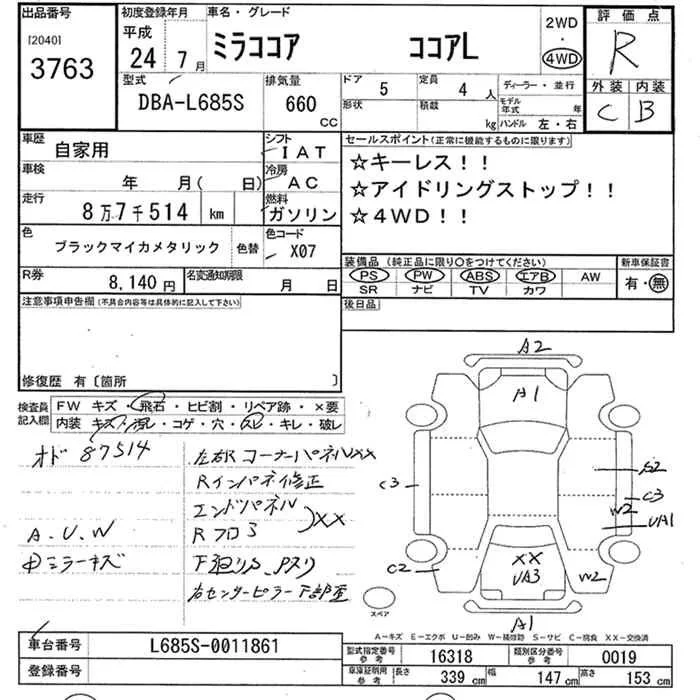 出品番号
[2040]
3763
初度登録年月
平成
24 7月
車名・グレード
ミラココア ココアL
2WD
・
4WD
評価点
R
外装 内装
C B
型式
DBA-L685S
排気量
660 CC
ドア 5 定員 4 人
形状 積載 kg
ディーラー・並行
モデル年式 年
ハンドル 左・右
車歴 自家用
シフト IAT
車検 年 月( 日)
冷房 AC
走行 8万7千514 km
燃料 ガソリン
色 ブラックマイカメタリック 色替
色コード X07
R券 8,140円
名変通知期限 月 日
セールスポイント(正常に機能するものに限ります)
☆キーレス!!
☆アイドリングストップ!!
☆4WD!!
装備品 (純正品に限り○をつけてください)
PS PW ABS エアB AW
SR ナビ TV カワ
新車保証書
有・無
後日品
注意事項申告欄(不具合内容等は具体的に記入して下さい)
修復歴 有〔箇所 〕
検査員記入欄
FW キズ・飛石・ヒビ割・リペア跡・×要
内装 キズ・汚レ・コゲ・穴・スレ・キレ・破レ
オド 87514
A.U.W
ミラーキズ
左右R コーナーパネルXX
Rインパネ修正
エンドパネル
Rフロア
XX
下廻りS, Pスリ
右センターピラー下部歪
A2
A1
C3
C2
S2
C3
W2
UA1
XX
UA3
W2
A1
スペア
A－キズ E－エクボ U－凹み W－補修跡 S－サビ C－腐食 XX－交換済
車台番号 L685S-0011861
登録番号
型式指定番号 参考 16318
類別区分番号 参考 0019
車庫証明用 参考 長さ 339 cm 幅 147 cm 高さ 153 cm